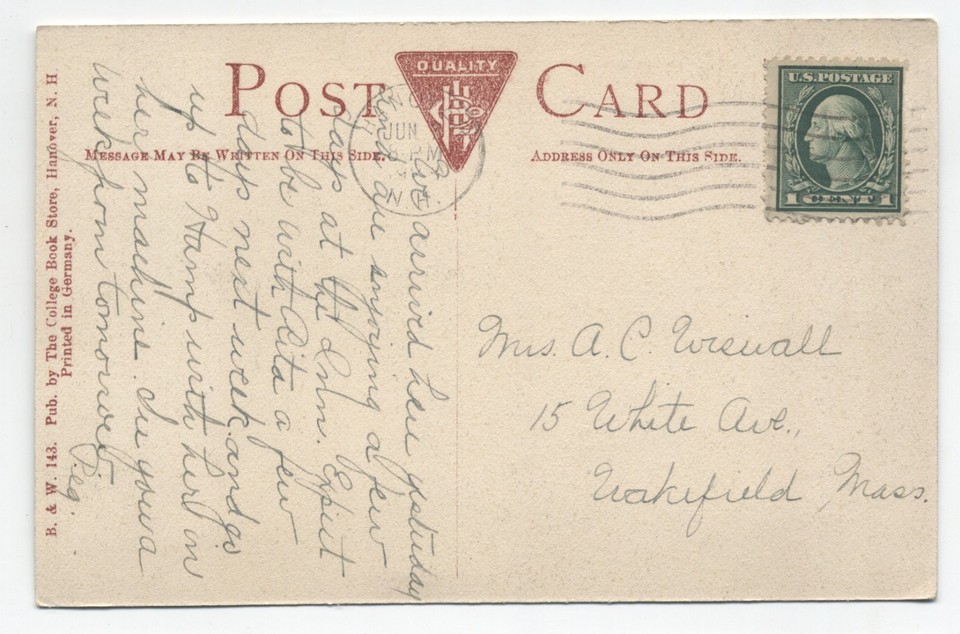 POST CARD
QUALITY
U.S. POSTAGE
1 CENT 1
JUN
PM
N.H.
MESSAGE MAY BE WRITTEN ON THIS SIDE.
ADDRESS ONLY ON THIS SIDE.
B. & W. 143. Pub. by The College Book Store, Hanover, N. H
Printed in Germany.
arrived here yesterday
and are enjoying a few
days at the Inn. Expect
to be with Rita a few
days next week and go
up to Hamp with her in
her machine. See you a
week from tomorrow
Peg.
Mrs. A. C. Wiswall
15 White Ave.,
Wakefield Mass.